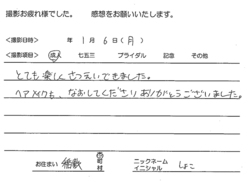 撮影お疲れ様でした。 感想をお願いいたします。
<撮影日時> 年 1月 6日(月)
<撮影項目> 成人 七五三 ブライダル 記念 その他
とても楽しくさつえいできました。
ヘアメイクも、なおしてくださりありがとうございました。
お住まい 町 村 ニックネーム イニシャル しょこ